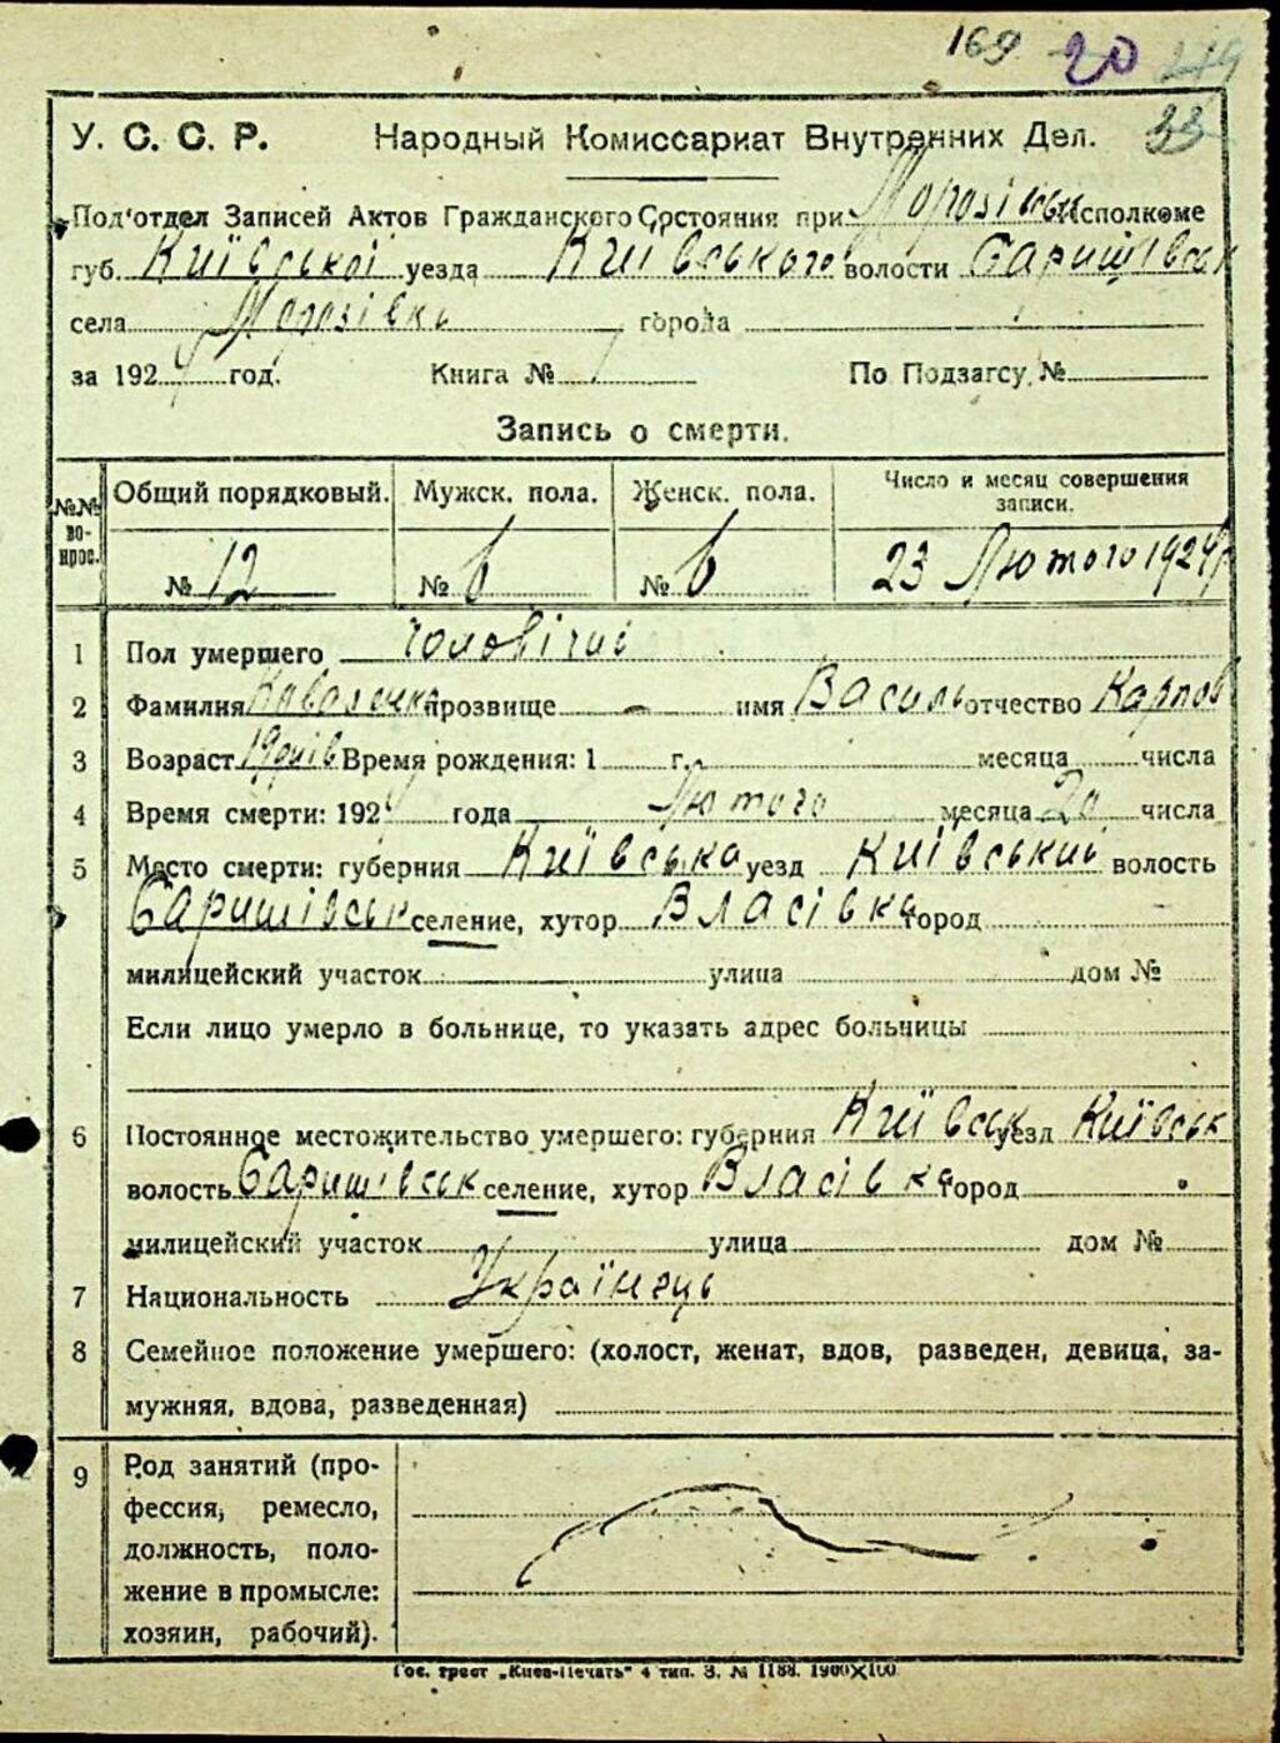 169 20 219
У. С. С. Р. Народный Комиссариат Внутренних Дел. 33
Под'отдел Записей Актов Гражданского Состояния при Морозівськ Исполкоме
губ. Київської уезда Київського волости Баришівськ
села Морозівки города
за 1924 год. Книга № По Подзагсу №
Запись о смерти.
№№ вопрос. Общий порядковый. Мужск. пола. Женск. пола. Число и месяц совершения записи.
№ 12 № 6 № 6 23 Лютого 1924 р
1 Пол умершего чоловічий
2 Фамилия Коваленко прозвище — имя Василь отчество Карпов
3 Возраст 19 днів Время рождения: 1 г. месяца числа
4 Время смерти: 1924 года Лютого месяца 20 числа
5 Место смерти: губерния Київська уезд Київський волость
Баришівськ селение, хутор Власівка город
милицейский участок улица дом №
Если лицо умерло в больнице, то указать адрес больницы
6 Постоянное местожительство умершего: губерния Київськ уезд Київськ
волость Баришівськ селение, хутор Власівка город
милицейский участок улица дом №
7 Национальность Українець
8 Семейное положение умершего: (холост, женат, вдов, разведен, девица, за-
мужняя, вдова, разведенная)
9 Род занятий (про-
фессия, ремесло,
должность, поло-
жение в промысле:
хозяин, рабочий).
Гос. трест „Киев-Печать" 4 тип. З. № 1188. 1900X100